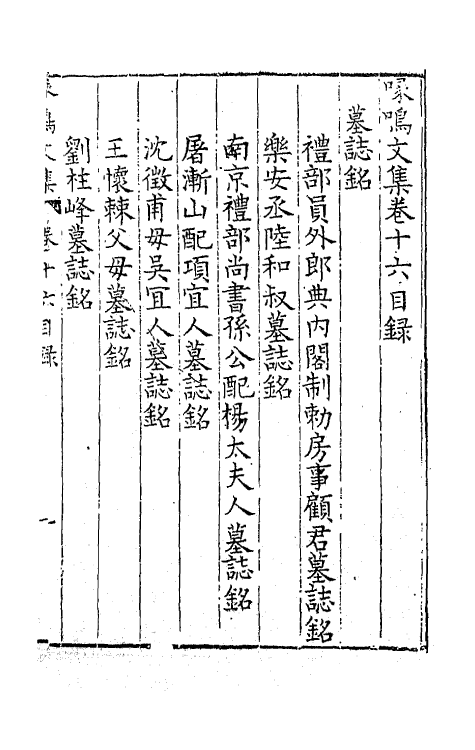 喙鳴文集卷十六目録
墓誌銘
禮部員外郎典内閣制勅房事顧君墓誌銘
樂安丞陸和叔墓誌銘
南京禮部尚書孫公配楊太夫人墓誌銘
屠漸山配項宜人墓誌銘
沈徵甫母吴宜人墓誌銘
王懷棘父母墓誌銘
劉柱峰墓誌銘
喙鳴文集 卷十六目録 一